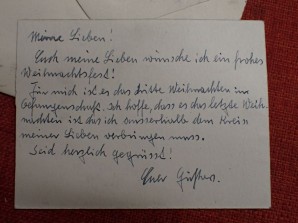 Meine Lieben!
Euch meine Lieben wünsche ich ein frohes
Weihnachtsfest!
Für mich ist es das dritte Weihnachten in
Gefangenschaft. Ich hoffe, dass es das letzte Weih-
nachten ist das ich ausserhalb dem Kreis
meiner Lieben verbringen muss.
Seid herzlich gegrüsst!
Euer Gustav.